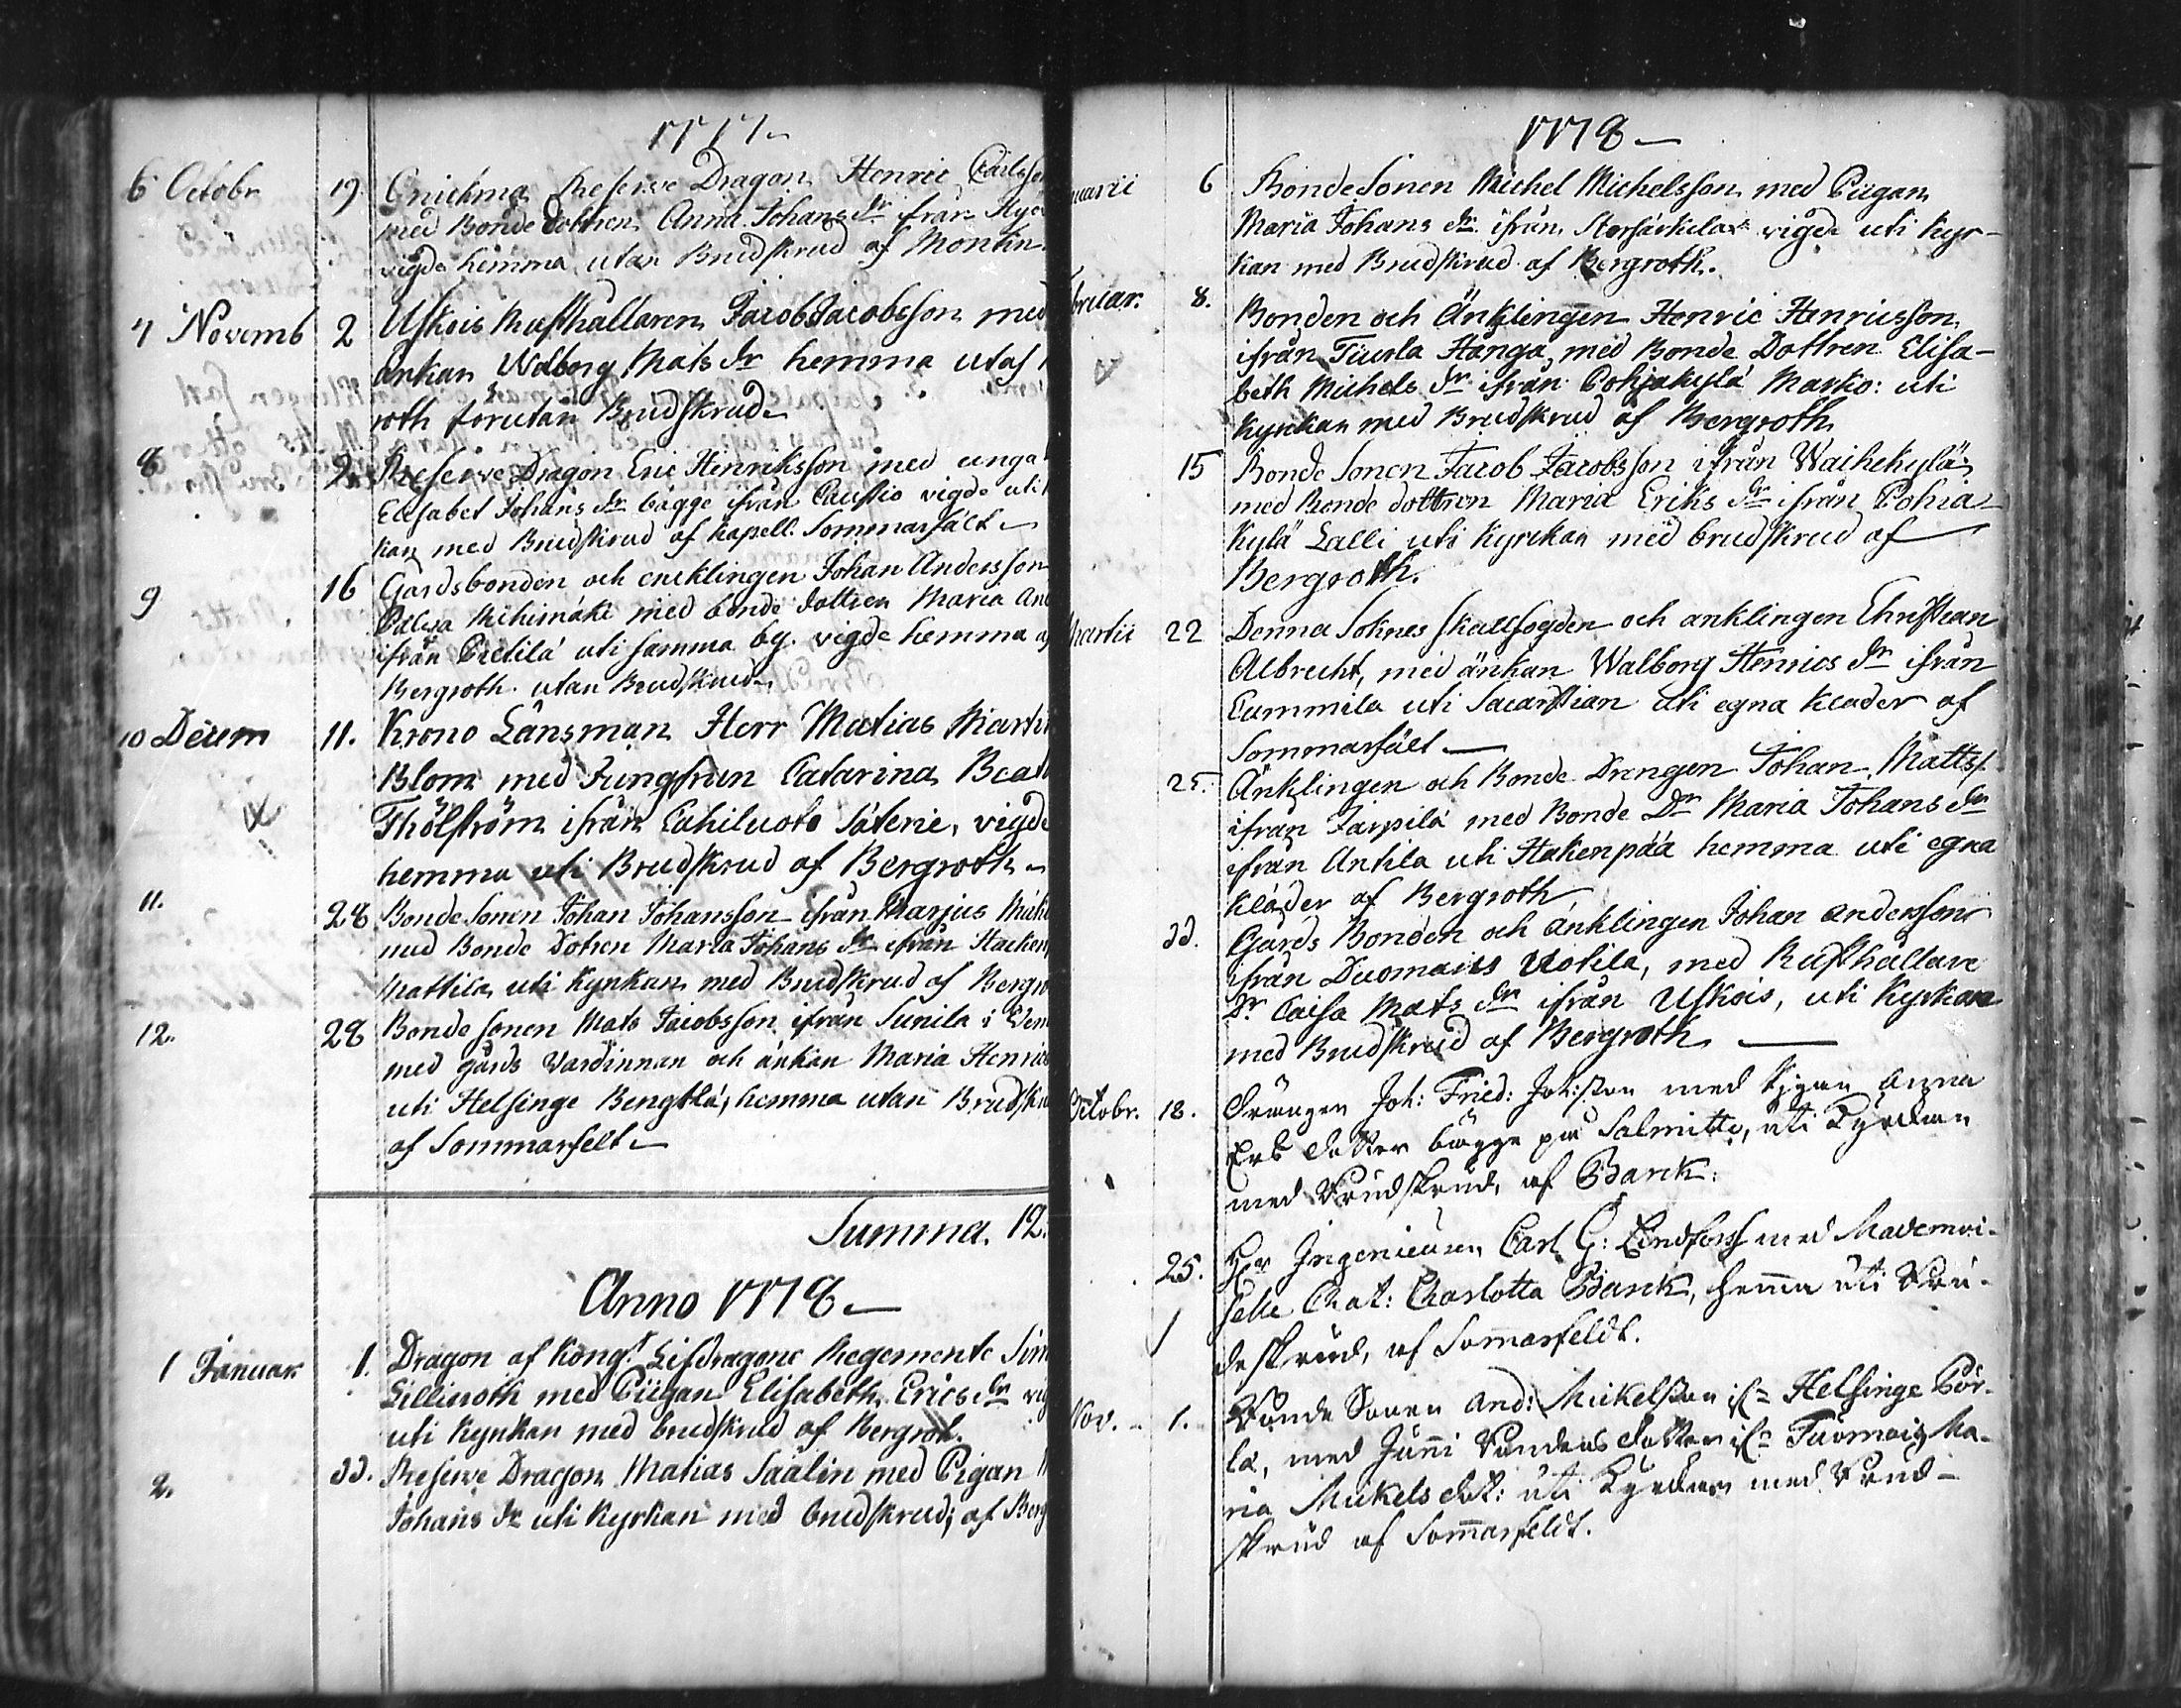 1777
6 Octobr 19. Reserve Dragon Henric Carlsson
med Bonde Dottren Anna Johans dr ifrån
vigde hemma utan Brudskrud af Montin
7 Novemb 2 Uskois Rusthållaren Jacob Jacobsson med
änkan Walborg Mats dr hemma utaf
roth förutan Brudskrud
8 9 Reserve Dragon Eric Henriksson med unga
Elisabet Johans dr bägge ifrån vigde uti
kan med Brudskrud af Kapell. Sommarfält
9 16 Gårdsbonden och encklingen Johan Andersson
med bonde dottren Maria And
ifrån Pietilä uti samma by. vigde hemma af
Bergroth utan Brudskrud
10 Decem 11. Krono Länsman Herr Matias Martin
Blom med Jungfrun Catarina Beata
Thölström ifrån Cahiluoto Säterie, vigde
hemma uti Brudskrud af Bergroth
11. 28 Bonde Sonen Johan Johansson ifrån Marjus
med Bonde Dotren Maria Johans dr ifrån Haken
Mattila uti Kyrkan med Brudskrud af Bergro
12. 28 Bonde sonen Mats Jacobsson ifrån Sunila i
med gårds Värdinnan och änkan Maria Henrics
uti Helsinge Bengtlä, hemma utan Brudskru
af Sommarfelt
Summa. 12.
Anno 1778
1 Januar 1. Dragon af Kongl. Lifdragone Regemente Sim
Lilliroth med Piigan Elisabeth Erics dr vig
uti Kyrkan med brudskrud af Bergrot.
2. 33. Reserve Dragon Matias Saalin med Pigan
Johans dr uti Kyrkan med brudskrud, af Berg
1778
nuarii 6 Bonde Sonen Michel Michelsson med Piigan
Maria Johans dr ifrån vigde uti Kyr-
kan med Brudskrud af Bergroth.
bruar. 8. Bonden och Änklingen Henric Henricsson
ifrån Tiusla Hånga, med Bonde Dottren Elisa-
beth Michels dr ifrån Pohjakylä Marko: uti
Kyrckan med Brudskrud af Bergroth
15 Bonde Sonen Jacob Jacobsson ifrån Waihekylä
med Bonde dottren Maria Eriks dr ifrån Pohia-
Kylä Lalli uti Kyrckan med brudskrud af
Bergroth.
Martii 22 Denna Soknes skallfogden och anklingen Christian
Albrecht, med änkan Walborg Henrics dr ifrån
uti uti egna kläder af
Sommarfält
25. Änklingen och Bonde Drengen Johan Mattss.
ifrån Jarpilä med Bonde Dr Maria Johans dr
ifrån Antila uti Hakenpää hemma uti egna
kläder af Bergroth
33. Gårds Bonden och änklingen Johan andersson
ifrån Duomais Uotila, med Rusthållare
Dr Caisa Mats dr ifrån Uskois, uti Kyrkan
med Brudskrud af Bergroth
Octobr. 18. Drängen Joh: Fried: Johsson med Pigan Anna
Ers dotter bägge på Salmitti, uti Kyrckan
med Brudskrud, af Banck:
25. Hr Ingenieuren Carl G: Lindforss med Mademoi-
selle Chat: Charlotta Banck, hemma uti Bru-
deskrud, af Sommarfeldt.
Nov. 1. Bonde Sonen And: Mickelsson ifrn Helsinge Bör-
la, med Bondens dotter ifrn Tuomois Ma-
ria Mickels dot: uti Kyrckan med Brud-
skrud af Sommarfeldt.